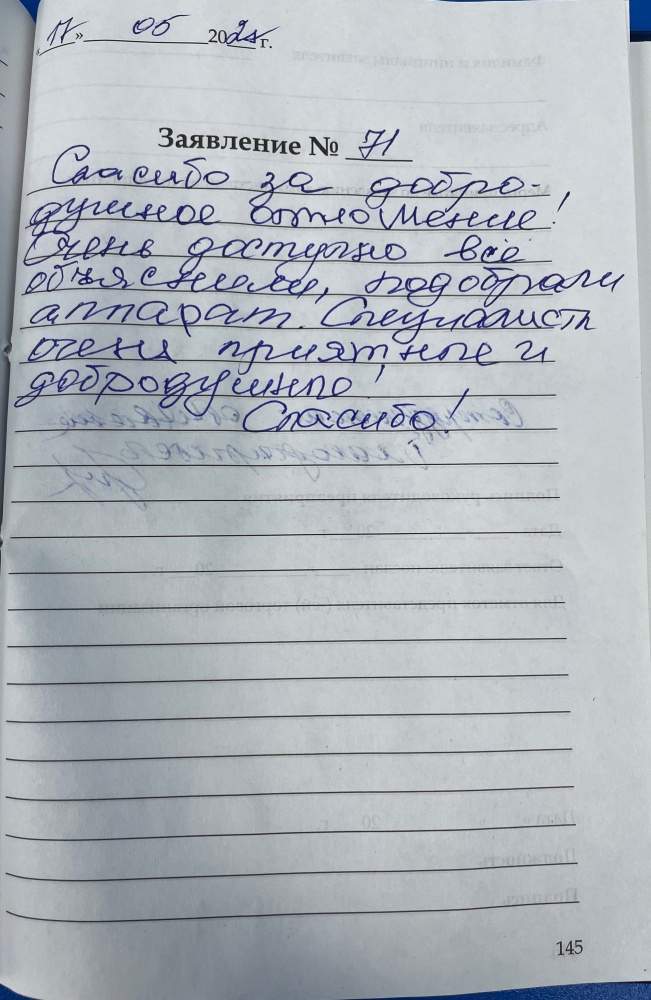 «17» 06 2024 г.
Заявление № 71
Спасибо за добро-
душное отношение!
Очень доступно всё
объяснили, подобрали
аппарат. Специалисты
очень приятные и
добродушны!
Спасибо!
145